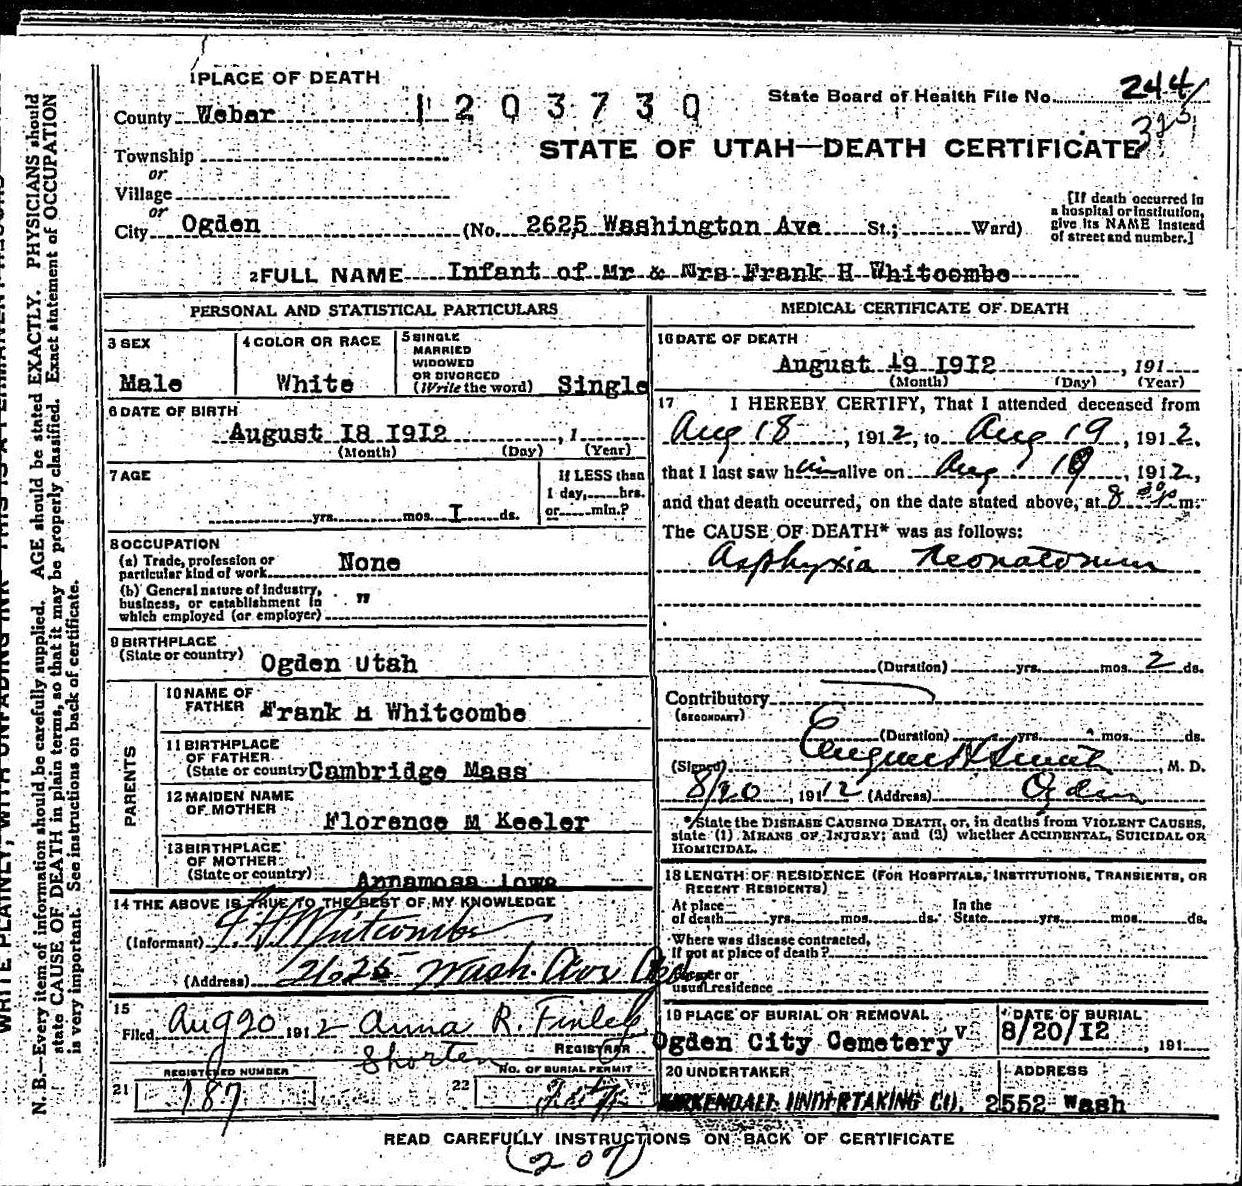 1 PLACE OF DEATH
County Weber 1203730 State Board of Health File No. 244
325
Township STATE OF UTAH—DEATH CERTIFICATE
or
Village
or
City Ogden (No. 2625 Washington Ave St.; Ward)
[If death occurred in
a hospital or institution,
give its NAME instead
of street and number.]
2 FULL NAME Infant of Mr & Mrs Frank H Whitcombe
PERSONAL AND STATISTICAL PARTICULARS
3 SEX
Male
4 COLOR OR RACE
White
5 SINGLE
MARRIED
WIDOWED
OR DIVORCED
(Write the word) Single
6 DATE OF BIRTH
August 18 1912 , 1
(Month) (Day) (Year)
7 AGE
yrs. mos. I ds.
If LESS than
1 day, hrs.
or min.?
8 OCCUPATION
(a) Trade, profession or
particular kind of work None
(b) General nature of industry,
business, or establishment in "
which employed (or employer)
9 BIRTHPLACE
(State or country) Ogden Utah
PARENTS
10 NAME OF
FATHER Frank H Whitcombe
11 BIRTHPLACE
OF FATHER
(State or country Cambridge Mass
12 MAIDEN NAME
OF MOTHER
Florence M Keeler
13 BIRTHPLACE
OF MOTHER
(State or country) Annamosa Iowa
14 THE ABOVE IS TRUE TO THE BEST OF MY KNOWLEDGE
(Informant) F. H. Whitcombe
(Address) 2625 Wash. Ave Ogd
15
Filed Aug 20 1912 Anna R. Finley
REGISTRAR
Shorten
REGISTERED NUMBER
21 187
NO. OF BURIAL PERMIT
22
MEDICAL CERTIFICATE OF DEATH
16 DATE OF DEATH
August 19 1912 , 191
(Month) (Day) (Year)
17 I HEREBY CERTIFY, That I attended deceased from
Aug 18 , 1912, to Aug 19 , 1912,
that I last saw him alive on Aug 19 , 1912,
and that death occurred, on the date stated above, at 8 30 p m.
The CAUSE OF DEATH* was as follows:
Asphyxia Neonatorum
(Duration) yrs. mos. 2 ds.
Contributory
(SECONDARY)
(Duration) yrs. mos. ds.
(Signed) Eugene H Smith , M. D.
8/20 , 1912 (Address) Ogden
*State the DISEASE CAUSING DEATH, or, in deaths from VIOLENT CAUSES,
state (1) MEANS OF INJURY; and (2) whether ACCIDENTAL, SUICIDAL OR
HOMICIDAL.
18 LENGTH OF RESIDENCE (FOR HOSPITALS, INSTITUTIONS, TRANSIENTS, OR
RECENT RESIDENTS)
At place In the
of death yrs. mos. ds. State yrs. mos. ds.
Where was disease contracted,
If not at place of death?
Former or
usual residence
19 PLACE OF BURIAL OR REMOVAL
Ogden City Cemetery
DATE OF BURIAL
8/20/12 , 191
20 UNDERTAKER
KIRKENDALL UNDERTAKING CO.
ADDRESS
2552 Wash
READ CAREFULLY INSTRUCTIONS ON BACK OF CERTIFICATE
(207)
N. B.—Every item of information should be carefully supplied. AGE should be stated EXACTLY. PHYSICIANS should
state CAUSE OF DEATH in plain terms, so that it may be properly classified. Exact statement of OCCUPATION
is very important. See instructions on back of certificate.
WRITE PLAINLY, WITH UNFADING INK THIS IS A PERMANENT RECORD